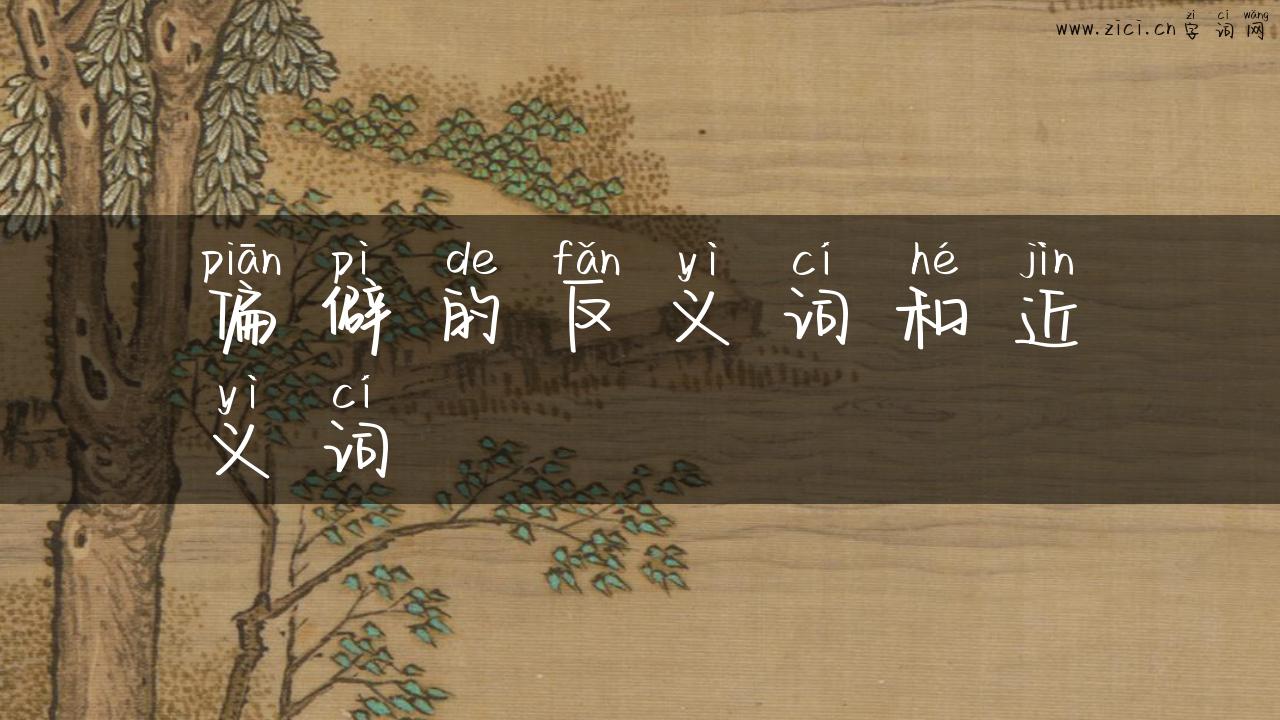 zì cí wǎng
www.zici.cn 字词网
piān pì de fǎn yì cí hé jìn
偏僻的反义词和近
yì cí
义词